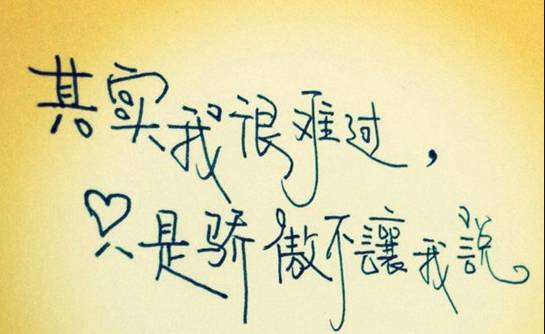 其实我很难过，
只是骄傲不讓我說。